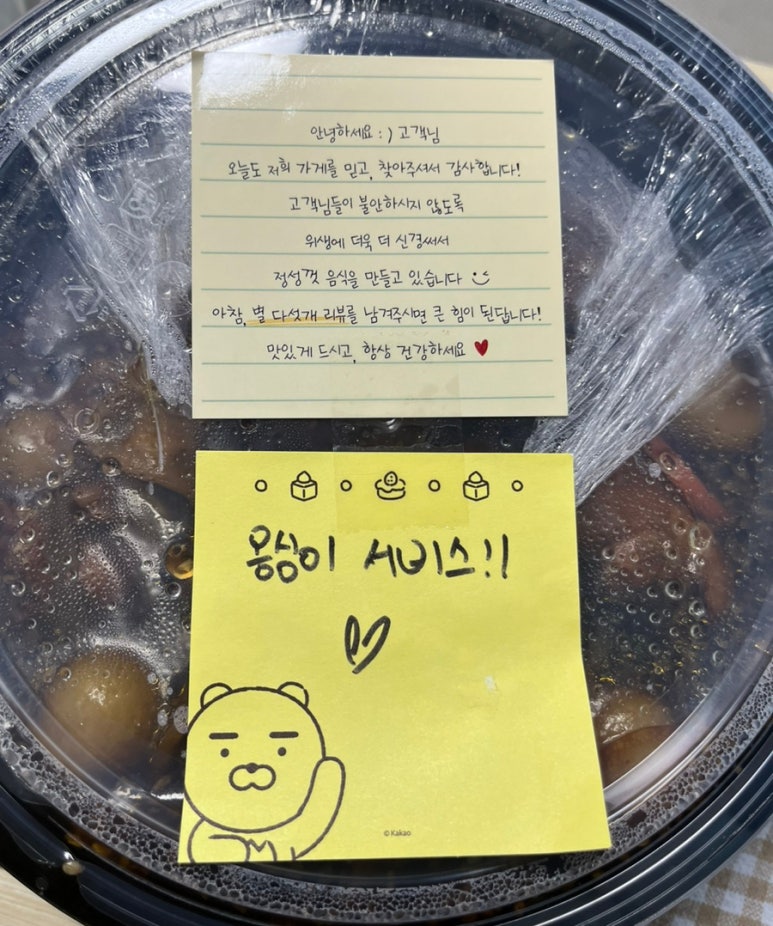 안녕하세요 :) 고객님
오늘도 저희 가게를 믿고, 찾아주셔서 감사합니다!
고객님들이 불안하시지 않도록
위생에 더욱 더 신경써서
정성껏 음식을 만들고 있습니다
아참, 별 다섯개 리뷰를 남겨주시면 큰 힘이 된답니다!
맛있게 드시고, 항상 건강하세요 ♥
옹심이 서비스!!
© Kakao